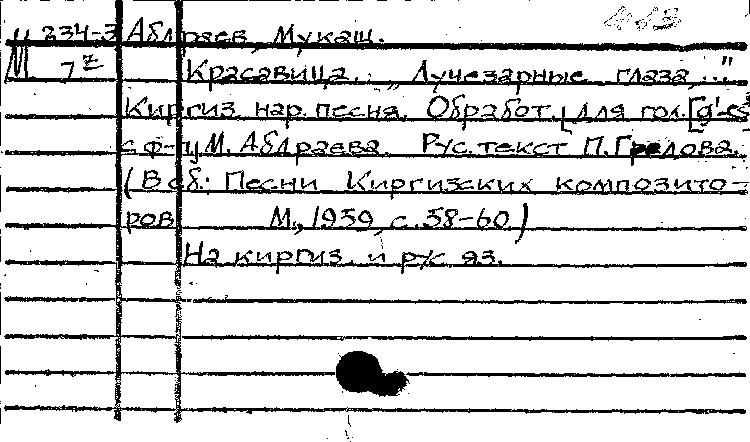 463
М 234-3 Абдраев, Мукаш.
7² Красавица. „Лучезарные глаза,.."
Киргиз. нар. песня. Обработ. [для гол. [g'-es
с ф-п] М. Абдраева. Рус. текст П. Градова.
(В сб: Песни Киргизских композито-
ров М., 1959, с. 58-60.)
На киргиз. и рус яз.